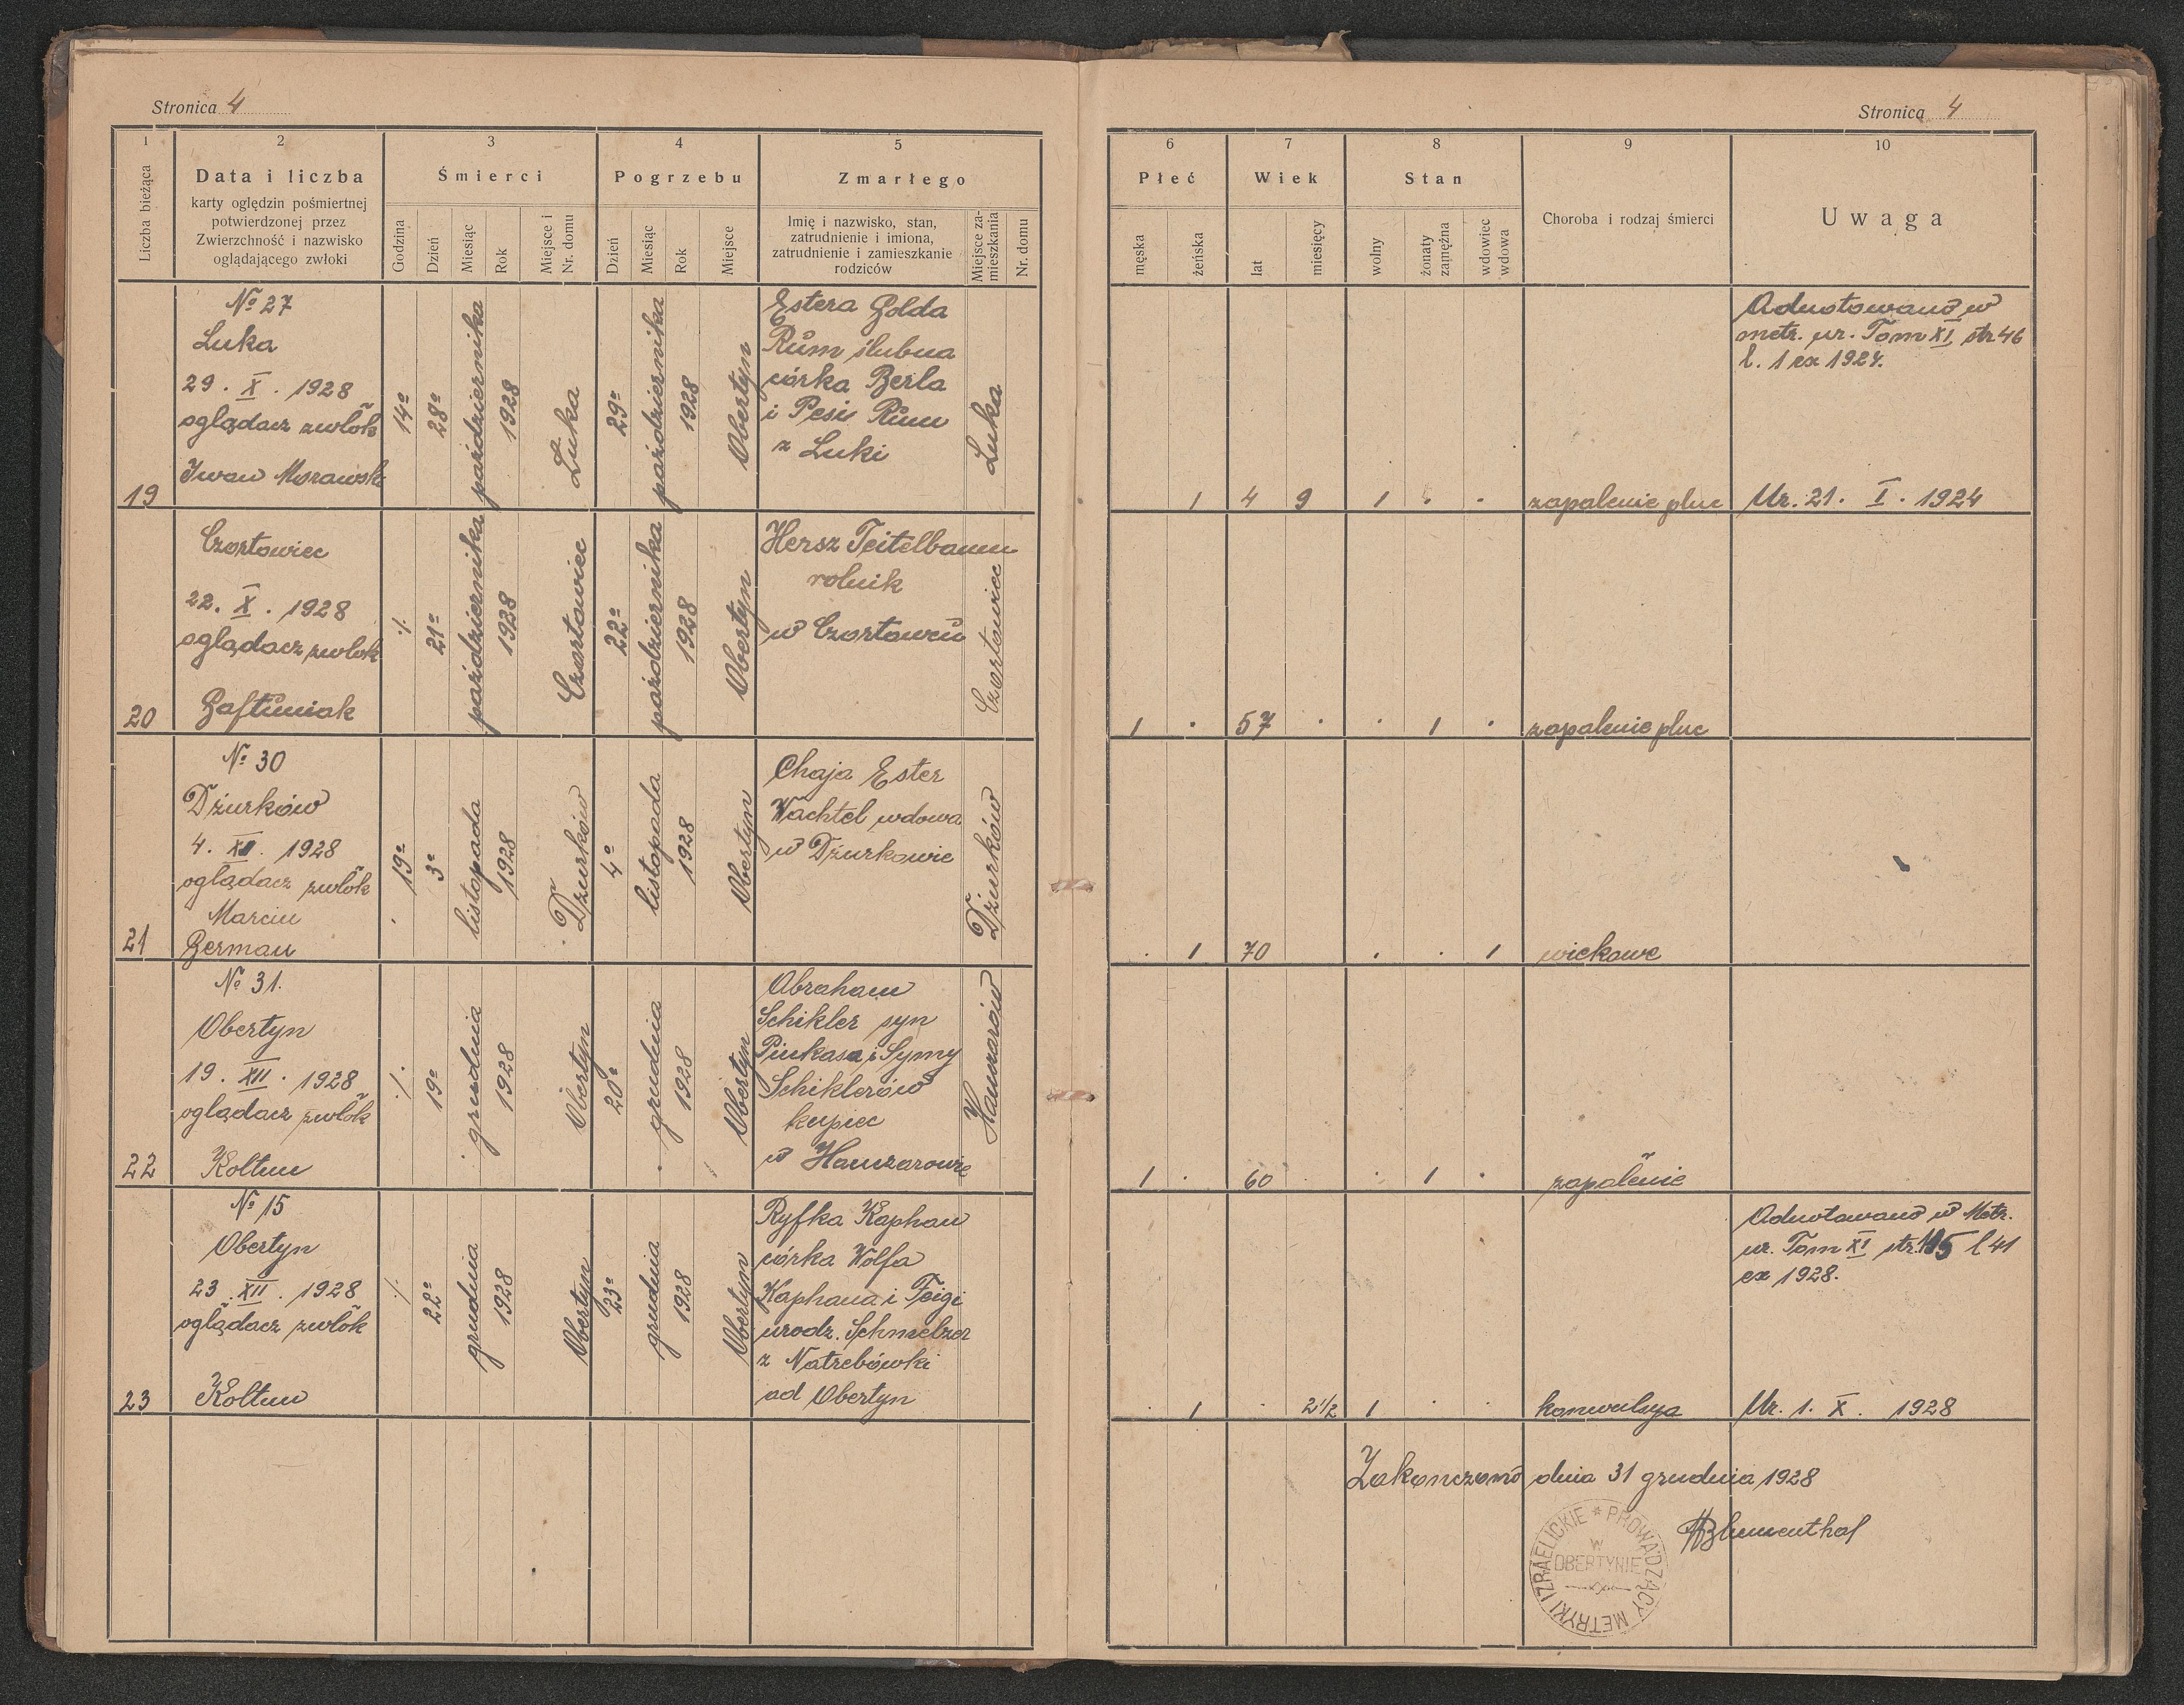 Stronica 4
Stronica 4
1
2
3
4
5
6
7
8
9
10
Liczba bieżąca
Data i liczba
karty oględzin pośmiertnej
potwierdzonej przez
Zwierzchność i nazwisko
oglądającego zwłoki
Śmierci
Godzina
Dzień
Miesiąc
Rok
Miejsce i
Nr. domu
Pogrzebu
Dzień
Miesiąc
Rok
Miejsce
Zmarłego
Imię i nazwisko, stan,
zatrudnienie i imiona,
zatrudnienie i zamieszkanie
rodziców
Miejsce za-
mieszkania
Nr. domu
Płeć
męska
żeńska
Wiek
lat
miesięcy
Stan
wolny
żonaty
zamężna
wdowiec
wdowa
Choroba i rodzaj śmierci
Uwaga
19
No 27
Łuka
29. X. 1928
oglądacz zwłok
Iwan Morawski
14o
28o
października
1928
Łuka
29o
października
1928
Obertyn
Estera Golda
Rum ślubna
córka Berla
i Pesi Rum
z Łuki
Łuka
1
4
9
1
zapalenie płuc
Adnotowano w
metr. ur. Tom XI, str. 46
l. 1 ex 1924.
Ur. 21. I. 1924
20
Czortowiec
22. X. 1928
oglądacz zwłok
Gaftuniak
./.
21o
października
1928
Czortowiec
22o
października
1928
Obertyn
Hersz Teitelbaum
rolnik
w Czortowcu
Czortowiec
1
57
1
zapalenie płuc
21
No 30
Dżurków
4. XI. 1928
oglądacz zwłok
Marcin
German
19o
3o
listopada
1928
Dżurków
4o
listopada
1928
Obertyn
Chaja Ester
Wachtel wdowa
w Dżurkowie
Dżurków
1
70
1
wiekowe
22
No 31.
Obertyn
19. XII. 1928
oglądacz zwłok
Kołtun
./.
19o
grudnia
1928
Obertyn
20o
grudnia
1928
Obertyn
Abraham
Schikler syn
Pinkasa i Symy
Schiklerów
kupiec
w Hanczarowie
Hanczarów
1
60
1
zapalenie
23
No 15
Obertyn
23. XII. 1928
oglądacz zwłok
Kołtun
./.
22o
grudnia
1928
Obertyn
23o
grudnia
1928
Obertyn
Ryfka Kaphan
córka Wolfa
Kaphana i Feigi
urodz. Schmelzer
z Natrebówki
ad Obertyn
1
2 1/2
1
konwulsya
Adnotowano w Metr.
ur. Tom XI str. 115 l 41
ex 1928.
Ur. 1. X. 1928
Zakończono dnia 31 grudnia 1928
HBlumenthal
PROWADZĄCY METRYKI IZRAELICKIE
W
OBERTYNIE